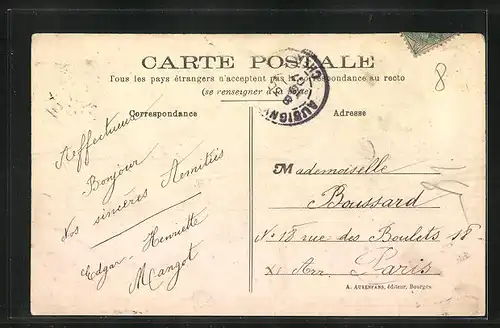 CARTE POSTALE
Tous les pays étrangers n'acceptent pas la correspondance au recto
(se renseigner à la Poste)
Correspondance
Affectueux
Bonjour
Nos sincères Amitiés
Edgar - Henriette
Mangot
AUBIGNY
CHER
Adresse
8
Mademoiselle
Boussard
No 18 rue des Boulets 18
XI Arr. Paris
A. AUXENFANS, éditeur, Bourges